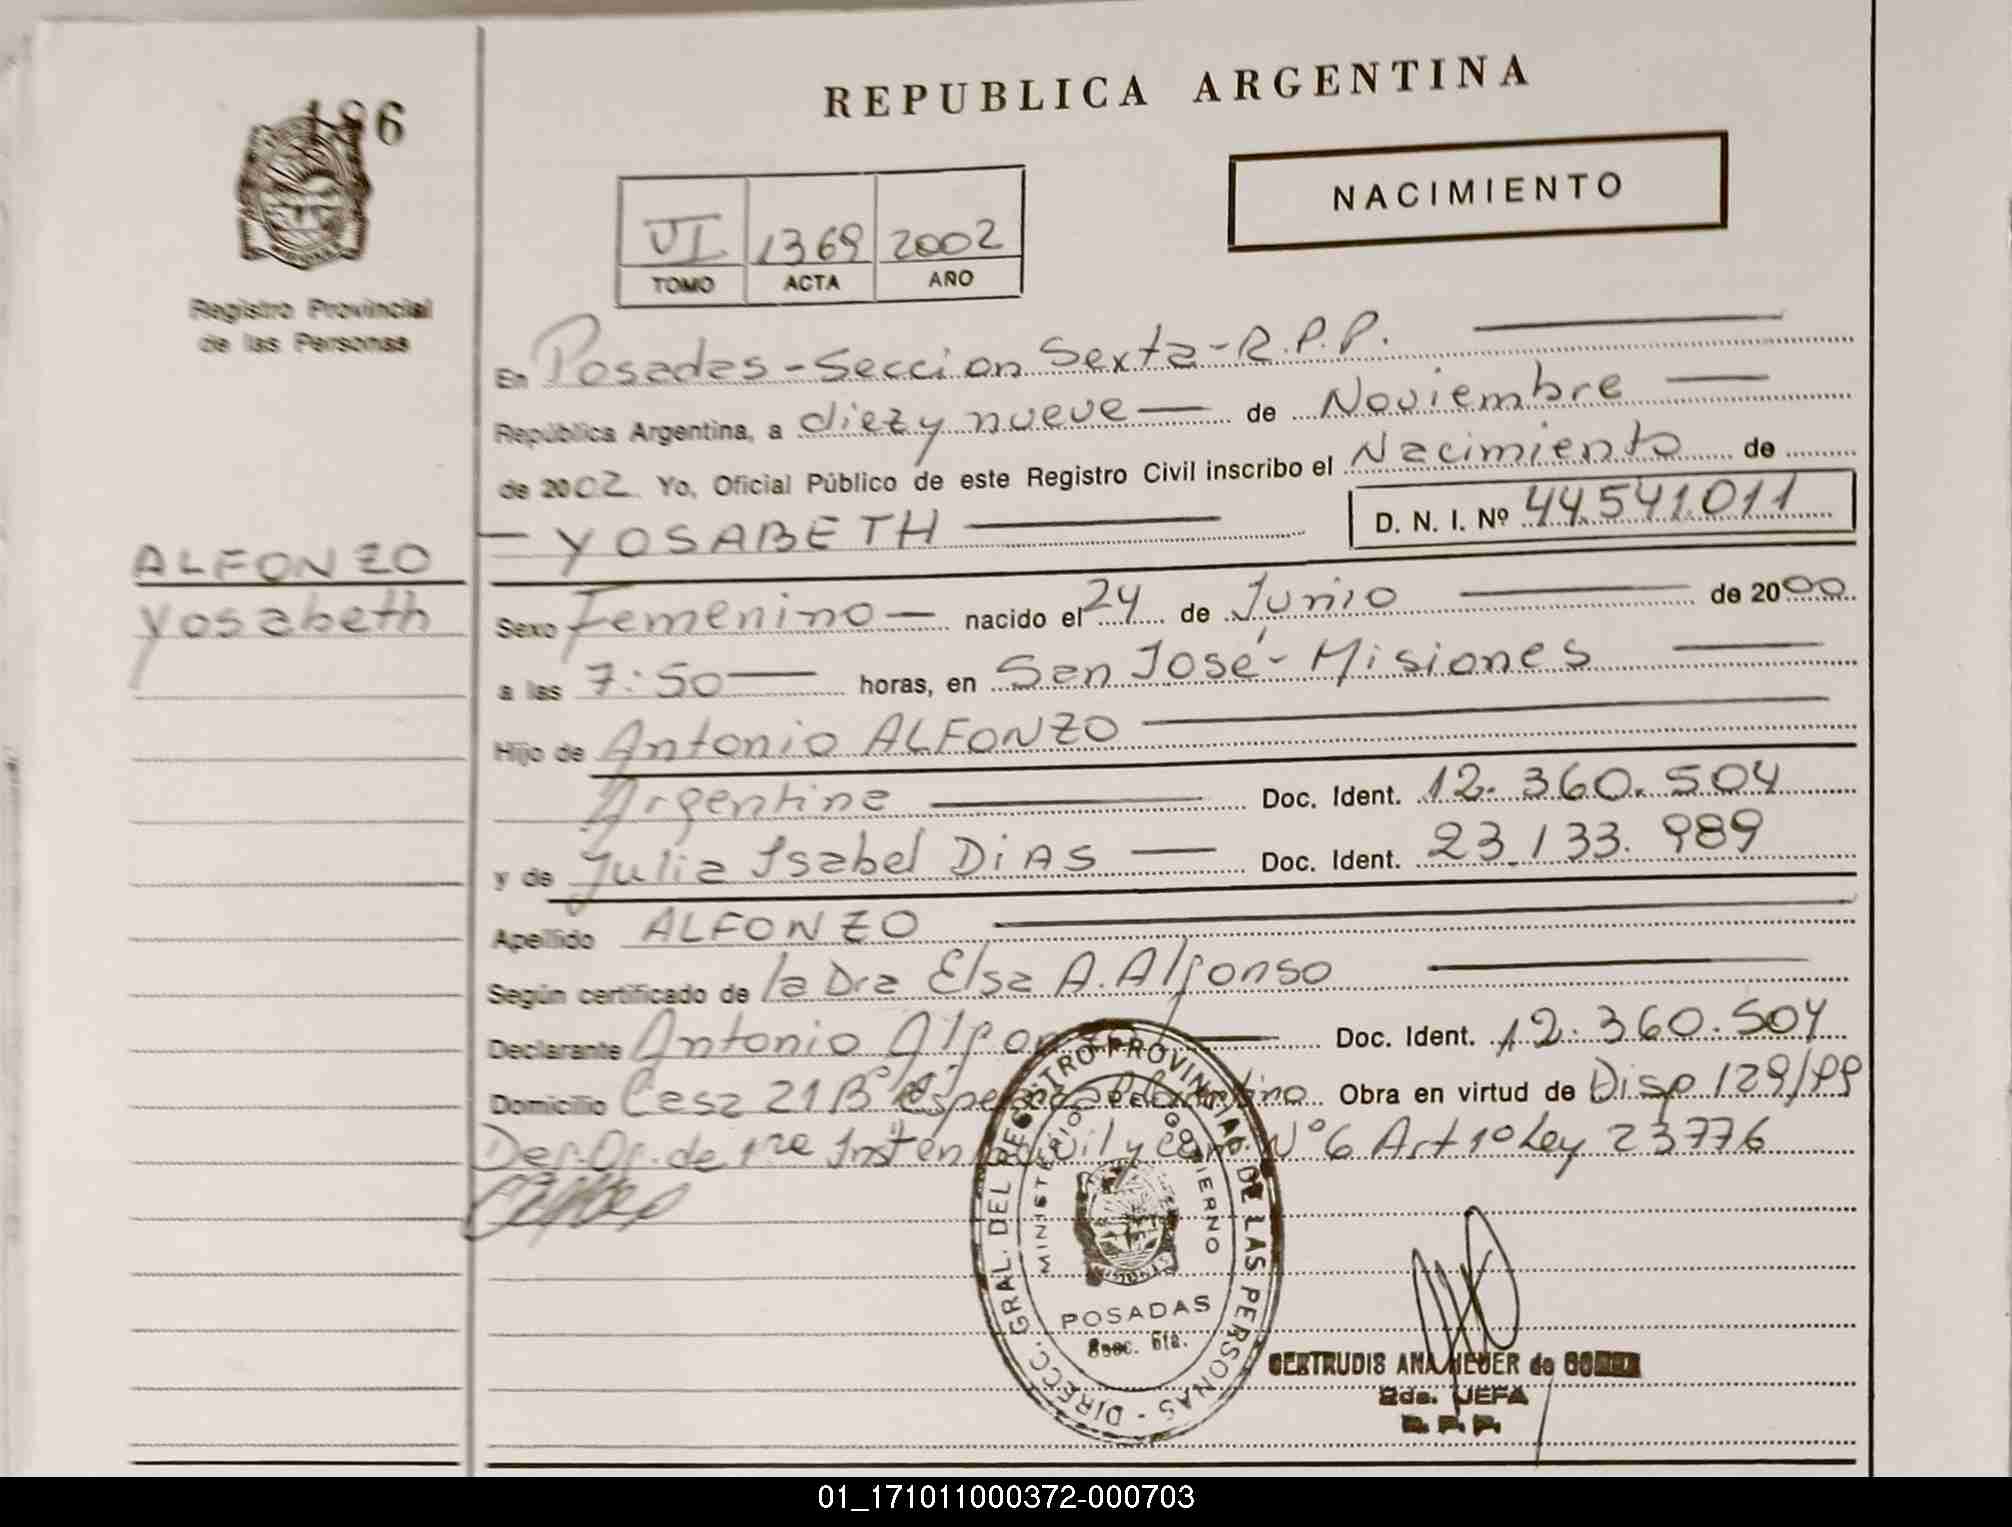 186
REPUBLICA ARGENTINA
NACIMIENTO
VI 1369 2002
TOMO ACTA AÑO
Registro Provincial
de las Personas
En Posadas - Seccion Sexta - R.P.P.
República Argentina, a diez y nueve — de Noviembre —
de 2002 Yo, Oficial Público de este Registro Civil inscribo el Nacimiento de
— YOSABETH — D. N. I. Nº 44.541.011
ALFONZO
Yosabeth
Sexo Femenino — nacido el 24 de Junio — de 2000
a las 7:50 — horas, en San José - Misiones —
Hijo de Antonio ALFONZO —
Argentina — Doc. Ident. 12.360.504
y de Julia Isabel DiAS — Doc. Ident. 23.133.989
Apellido ALFONZO —
Según certificado de la Dra Elsa A. Alfonso —
Declarante Antonio Doc. Ident. 12.360.504
Domicilio Casa 21 Bº Obra en virtud de Disp 129/99
de 1ra Nº 6 Art 1º Ley 23776
DIRECC. GRAL. DEL REGISTRO PROVINCIAL DE LAS PERSONAS
MINISTERIO DE GOBIERNO
POSADAS
Secc. 6ta.
GERTRUDIS ANA de
2da. JEFA
R. P. P.
01_171011000372-000703